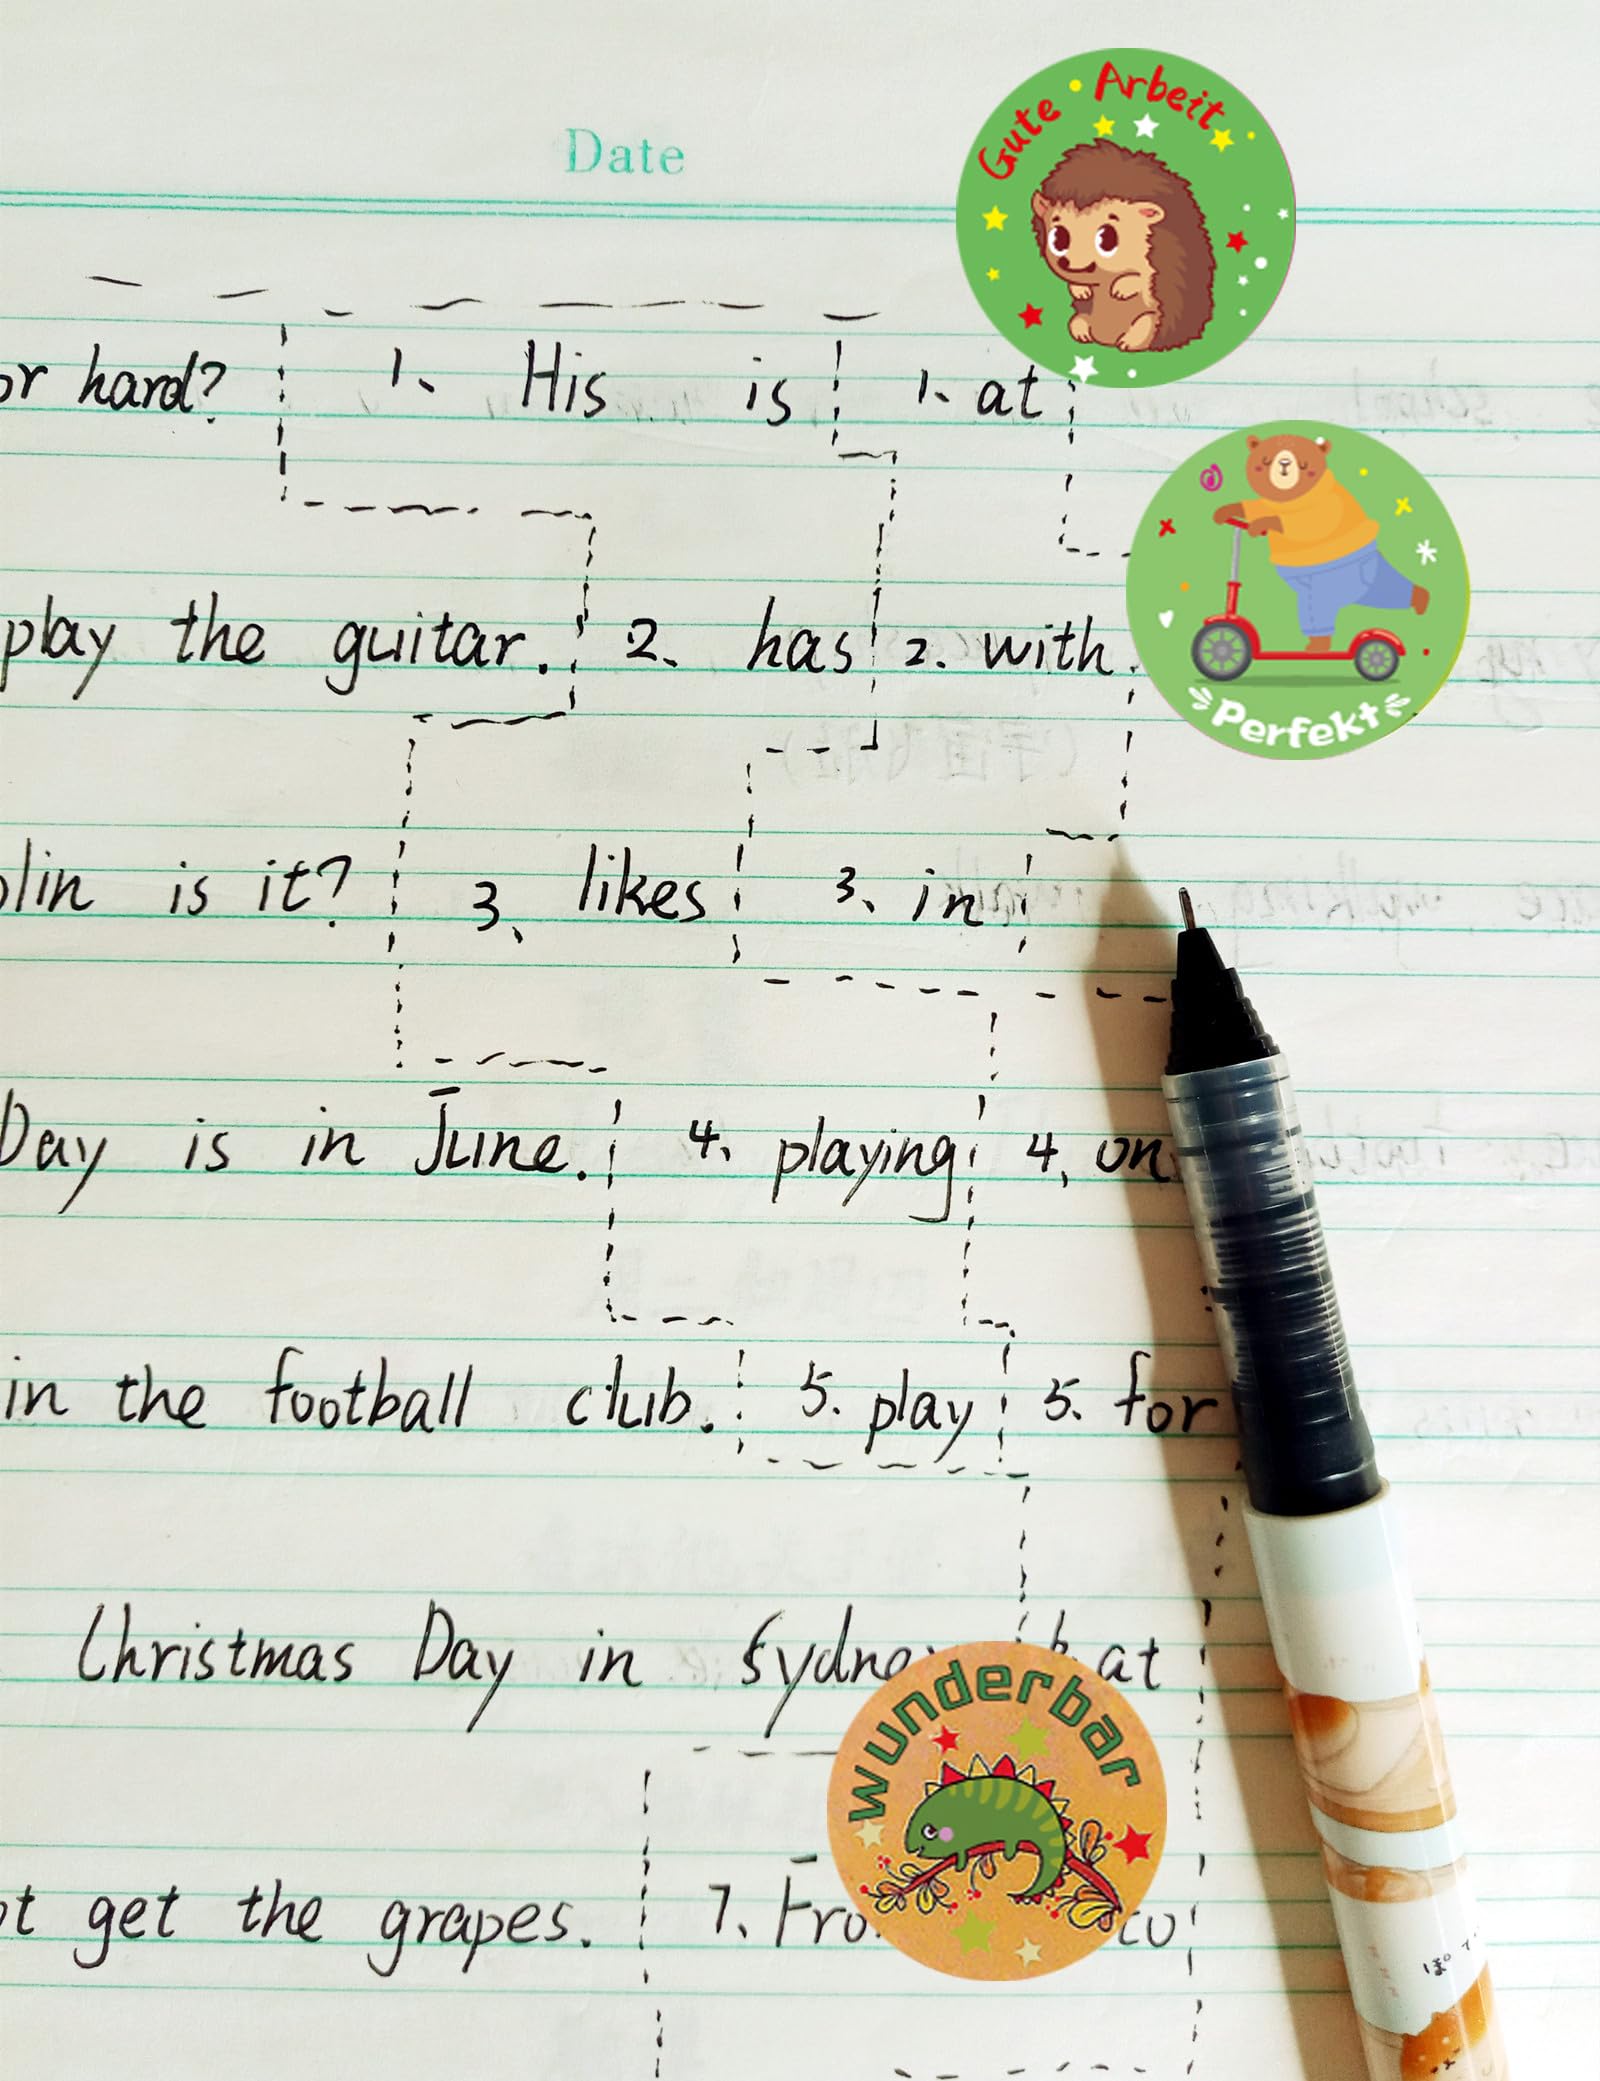 Date
Gute Arbeit
or hard? 1、 His is 1、at
play the guitar. 2、 has 2. with
Perfekt
is it? 3、 likes 3、in
Day is in June. 4、 playing 4、on
in the football club. 5. play 5. for
Christmas Day in at
wunderbar
get the grapes. 7、